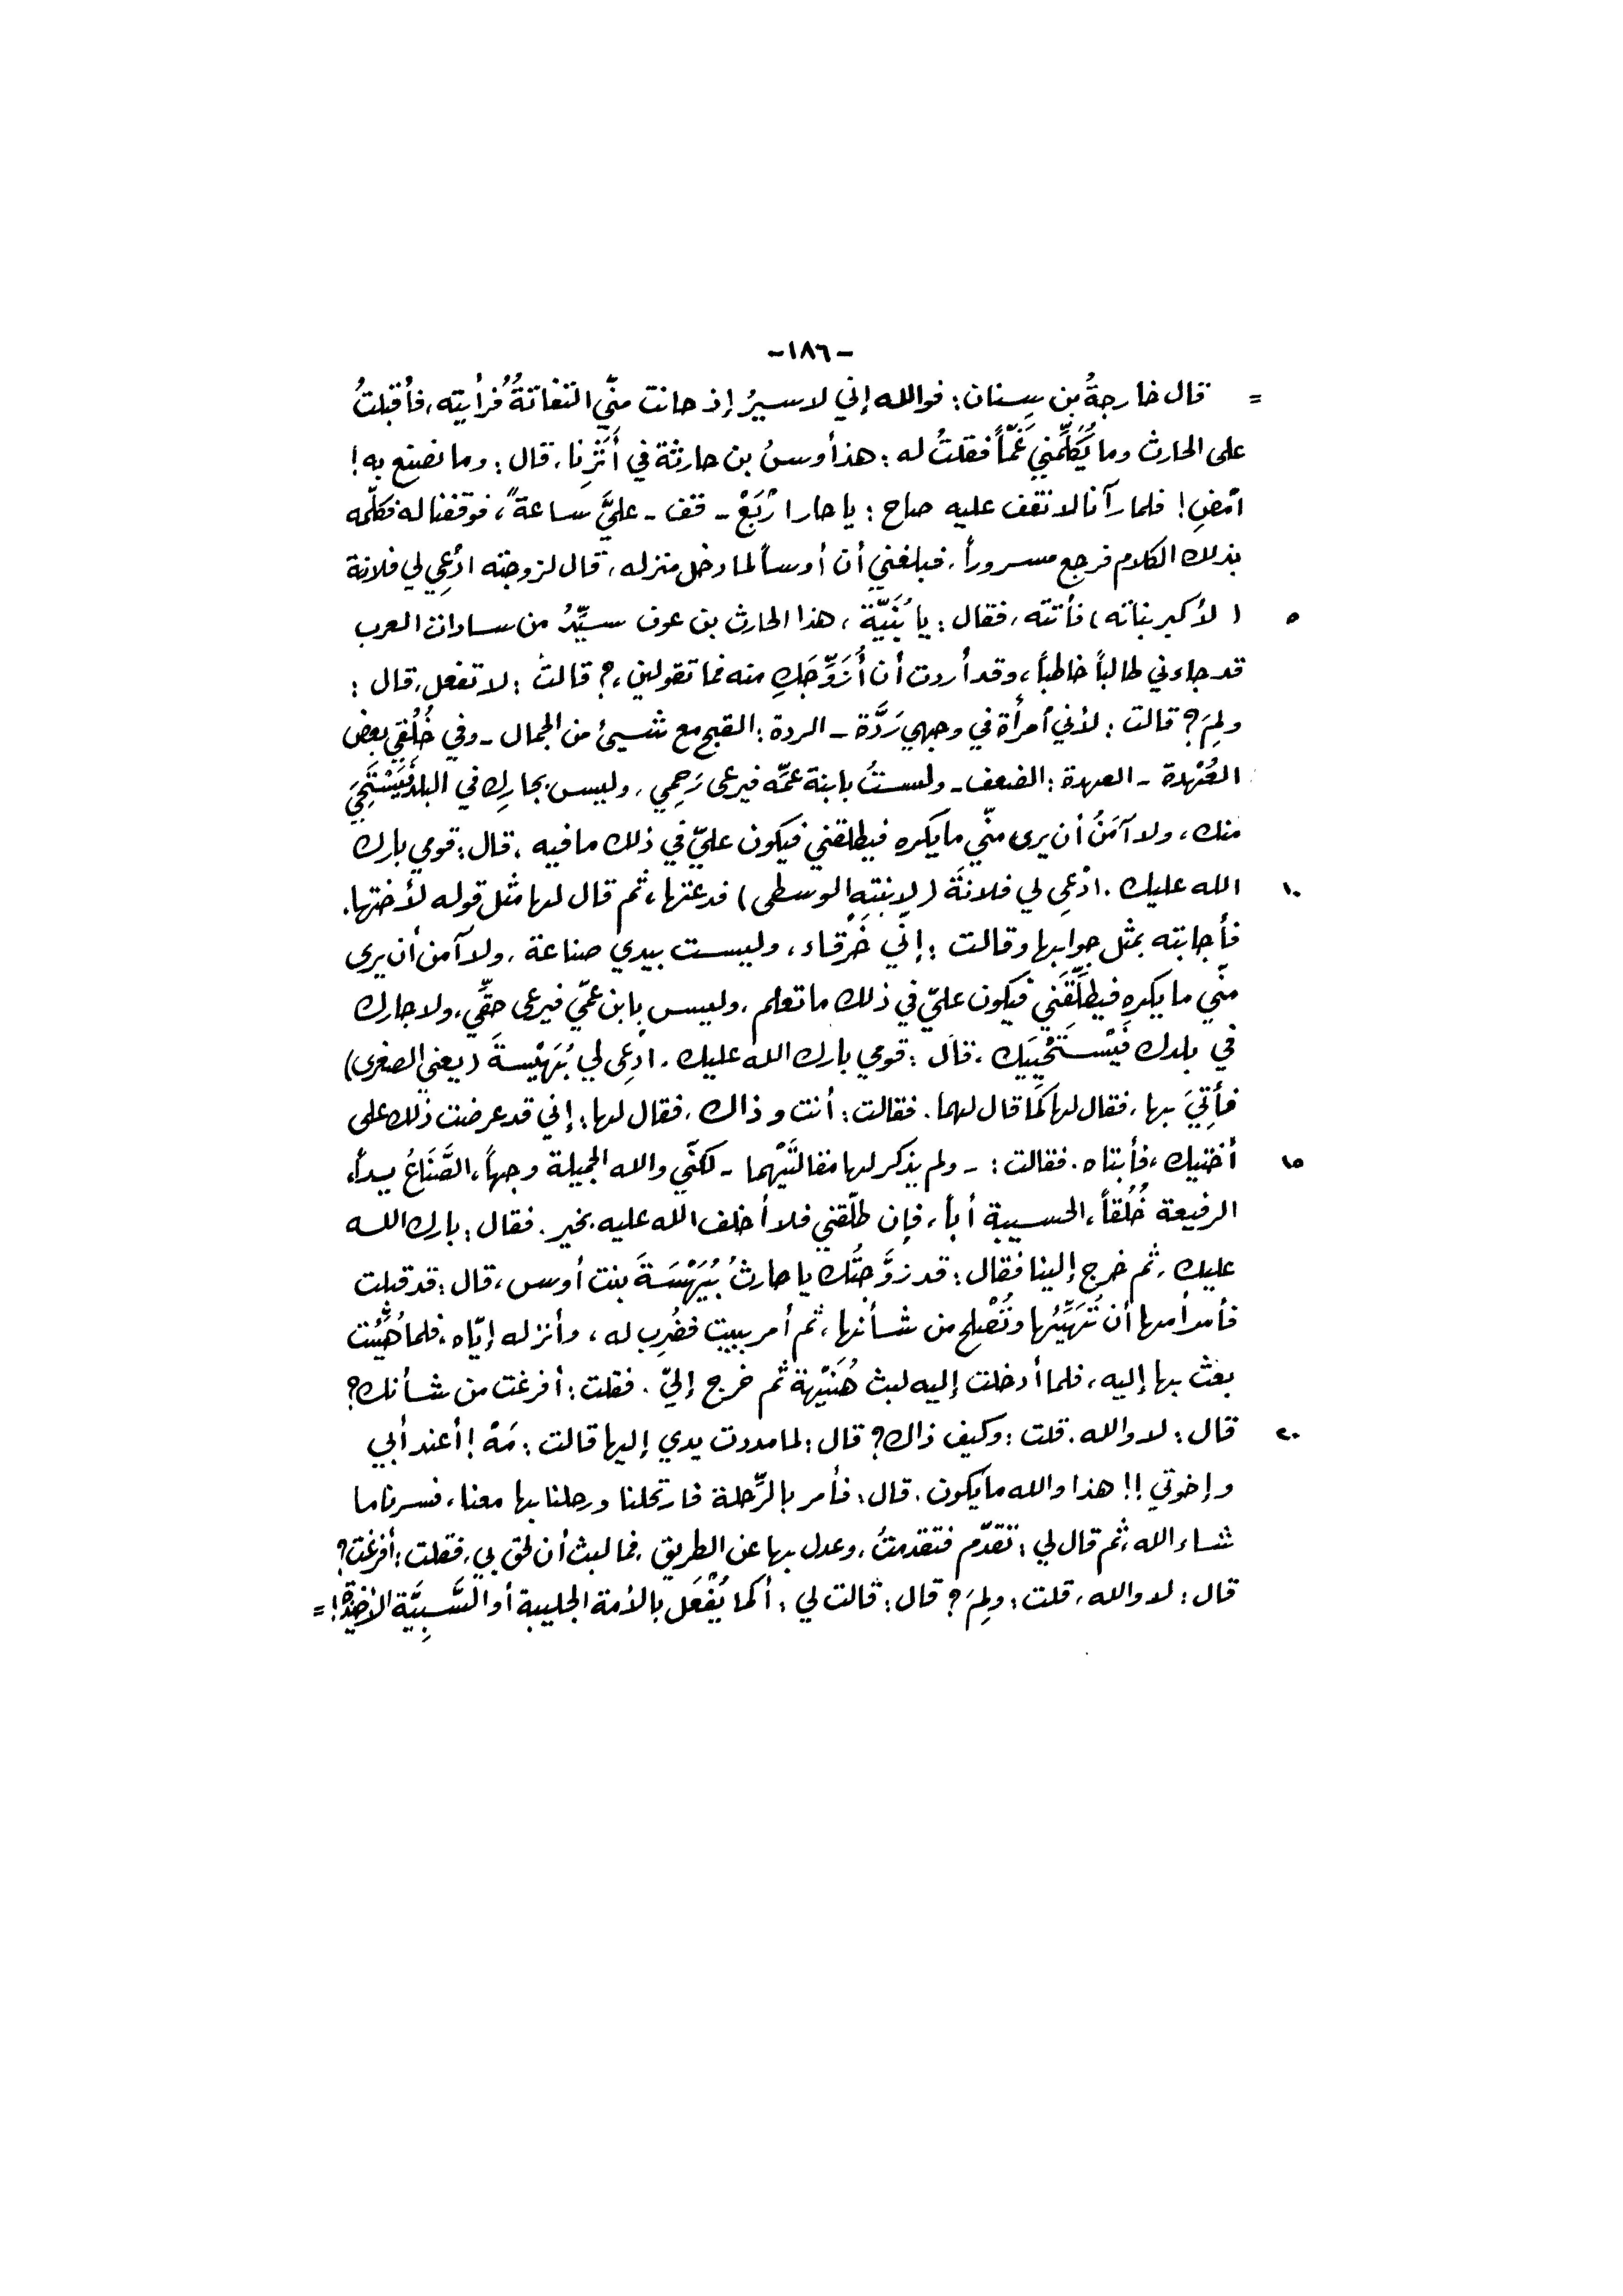 -١٨٦-
= قال خارجةُ بن سِنان: فوالله إني لأسيرُ إذ حانت منِّي التفاتةُ فرأيته، فأقبلتُ
على الحارث وما يُكلِّمني غمّاً فقلتُ له: هذا أوسُ بن حارثة في أثرنا، قال: وما نصنع به!
امضِ! فلما رآنا لا نقف عليه صاح: يا حار ارْبَعْ - قف - عليَّ ساعة، فوقفنا له فكلّمه
بذلك الكلام فرجع مسروراً، فبلغني أن أوساً لما دخل منزله، قال لزوجته ادْعِي لي فلانة
٥ (لأكبر بناته) فأتته، فقال: يا بُنَيَّة، هذا الحارث بن عوف سيِّدُ من سادات العرب
قد جاءني طالباً خاطباً، وقد أردت أن أُزَوِّجَكِ منه فما تقولين،؟ قالت: لا تفعل، قال:
ولِمَ؟ قالت: لأني امرأة في وجهي رَدَّة - الردة: القبح مع شيئ من الجمال - وفي خُلُقي بعض
العُهْدة - العهدة: الضعف - ولستُ بابنة عمّه فيرعى رَحِمي، وليس بجارك في البلد فيَسْتَحِيَ
منك، ولا آمَنُ أن يرى منّي ما يكره فيطلقني فيكون عليّ في ذلك ما فيه، قال: قومي بارك
١٠ الله عليك. ادْعِي لي فلانةَ (لابنتِهِ الوسطى) فدعتها، ثم قال لها مثل قوله لأختها.
فأجابته بمثل جوابها وقالت: إنّي خَرْقاء، وليست بيدي صناعة، ولا آمن أن يرى
منّي ما يكره فيطلِّقَني فيكون عليّ في ذلك ما تعلم، وليس بابن عمّي فيرعى حقّي، ولا جارك
في بلدك فَيَسْتَحْيِيَك، قال: قومي بارك الله عليك، ادْعِي لي بُهَيْسةَ (يعني الصغرى)
فأُتِيَ بها، فقال لها كما قال لهما. فقالت: أنت وذاك، فقال لها: إني قد عرضت ذلك على
١٥ أختيك، فأبتاه. فقالت: - ولم يذكر لها مقالتَيْهما - لكنّي والله الجميلة وجهاً، الصَّنَاعُ يداً،
الرفيعة خُلُقاً، الحسيبة أباً، فإن طلّقني فلا أخلف الله عليه بخير. فقال: بارك الله
عليك، ثم خرج إلينا فقال: قد زوَّجتُك يا حارثُ بُيَهْسَةَ بنت أوس، قال: قد قبلت
فأمر أمها أن تُهَيِّئها وتُصْلح من شأنها، ثم أمر ببيت فضُرِب له، وأنزله إيّاه، فلما هُيِّئت
بعث بها إليه، فلما أدخلت إليه لبث هُنَيْهة ثم خرج إليّ. فقلت: أفرغت من شأنك؟
٢٠ قال: لا والله. قلت: وكيف ذاك؟ قال: لما مددت يدي إليها قالت: مَهْ! أعند أبي
وإخوتي!! هذا والله ما يكون. قال: فأمر بالرِّحلة فارتحلنا ورحلنا بها معنا، فسرنا ما
شاء الله، ثم قال لي: تقدّم فتقدمتُ، وعدل بها عن الطريق، فما لبث أن لحق بي، فقلت: أفرغت؟
قال: لا والله، قلت: ولِمَ؟ قال: قالت لي: أكما يُفْعَل بالأمة الجليبة أو السَّبِيَّة الأخيذة! =